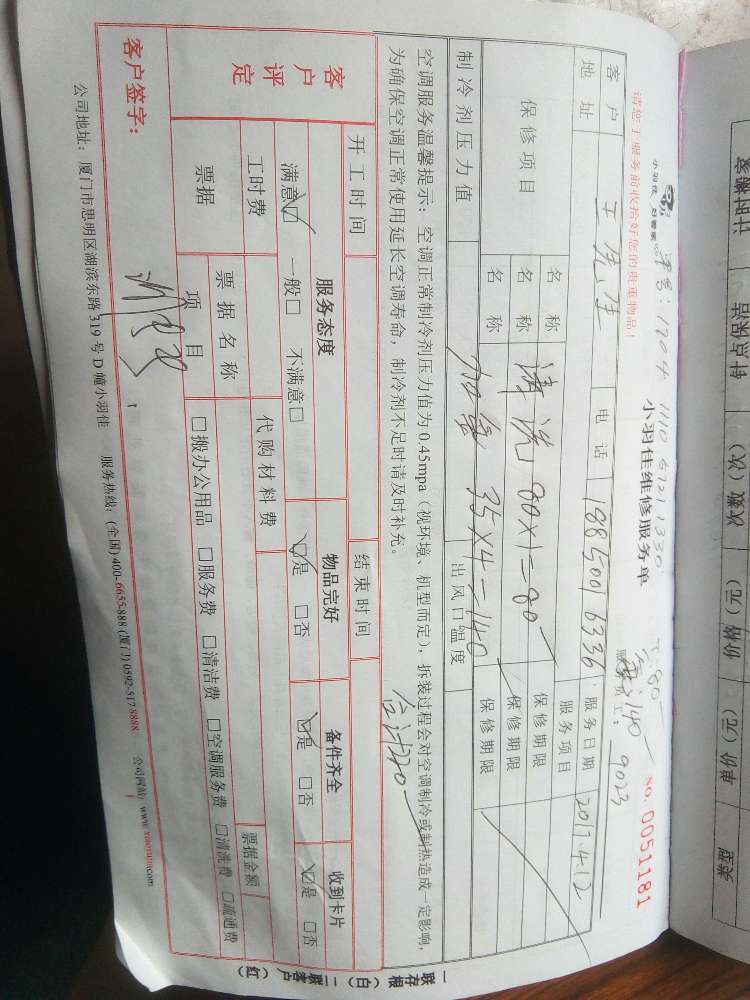 小羽佳 好管家
单号：1704 1110 6721 1330
T：80
请您于服务前收拾好您的贵重物品！
小羽佳维修服务单
140
NO. 0051181
员工：9023
客户 王先生 电话 18850016336 服务日期 2017.4.12
地址 服务项目
保修项目 名称 清洗 80×1=80 保修期限
名称 加氟 35×4=140 保修期限
名称 保修期限
制冷剂压力值 出风口温度
合计220
空调服务温馨提示：空调正常制冷剂压力值为0.45mpa（视环境、机型而定），拆装过程会对空调制冷或制热造成一定影响，
为确保空调正常使用延长空调寿命，制冷剂不足时请及时补充。
开工时间 结束时间
客户评定 服务态度 物品完好 备件齐全 收到卡片
满意☑ 一般□ 不满意□ ☑是 □否 ☑是 □否 ☑是 □否
工时费 代购材料费 票据金额
票据 票据名称
项目 □搬办公用品 □服务费 □清洁费 □空调服务费 □清洗费 □疏通费
客户签字：
公司地址：厦门市思明区湖滨东路319号D幢小羽佳 服务热线：(全国) 400-6655-888 (厦门) 0592-517 8888 公司网站：www.xiaoyujia.com
一联存根（白） 二联客户（红）
计时搬家
钟点保洁
次数（次）
价格（元）
单价（元）
类型